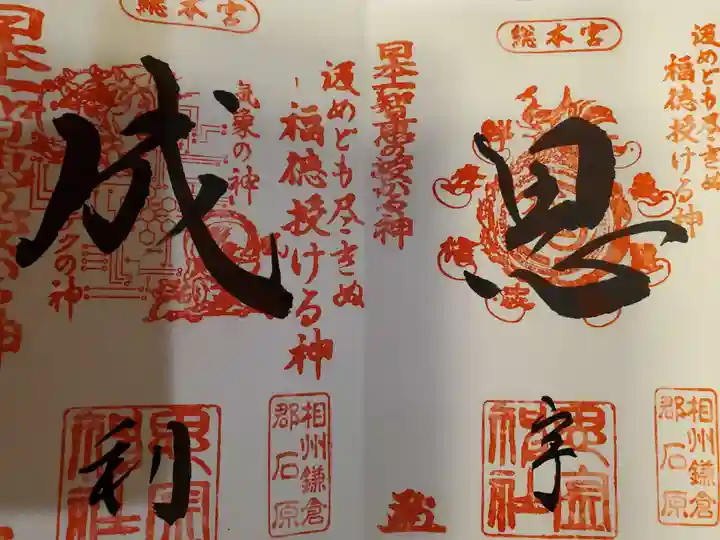 汲めども尽きぬ
福徳授ける神
総本宮
思
宇
日本一智恵の授かる神
相州鎌倉
郡石原
思金
神社
汲めども尽きぬ
福徳授ける神
総本宮
気象の神
クの神
成
利
相州鎌倉
郡石原
思金
神社